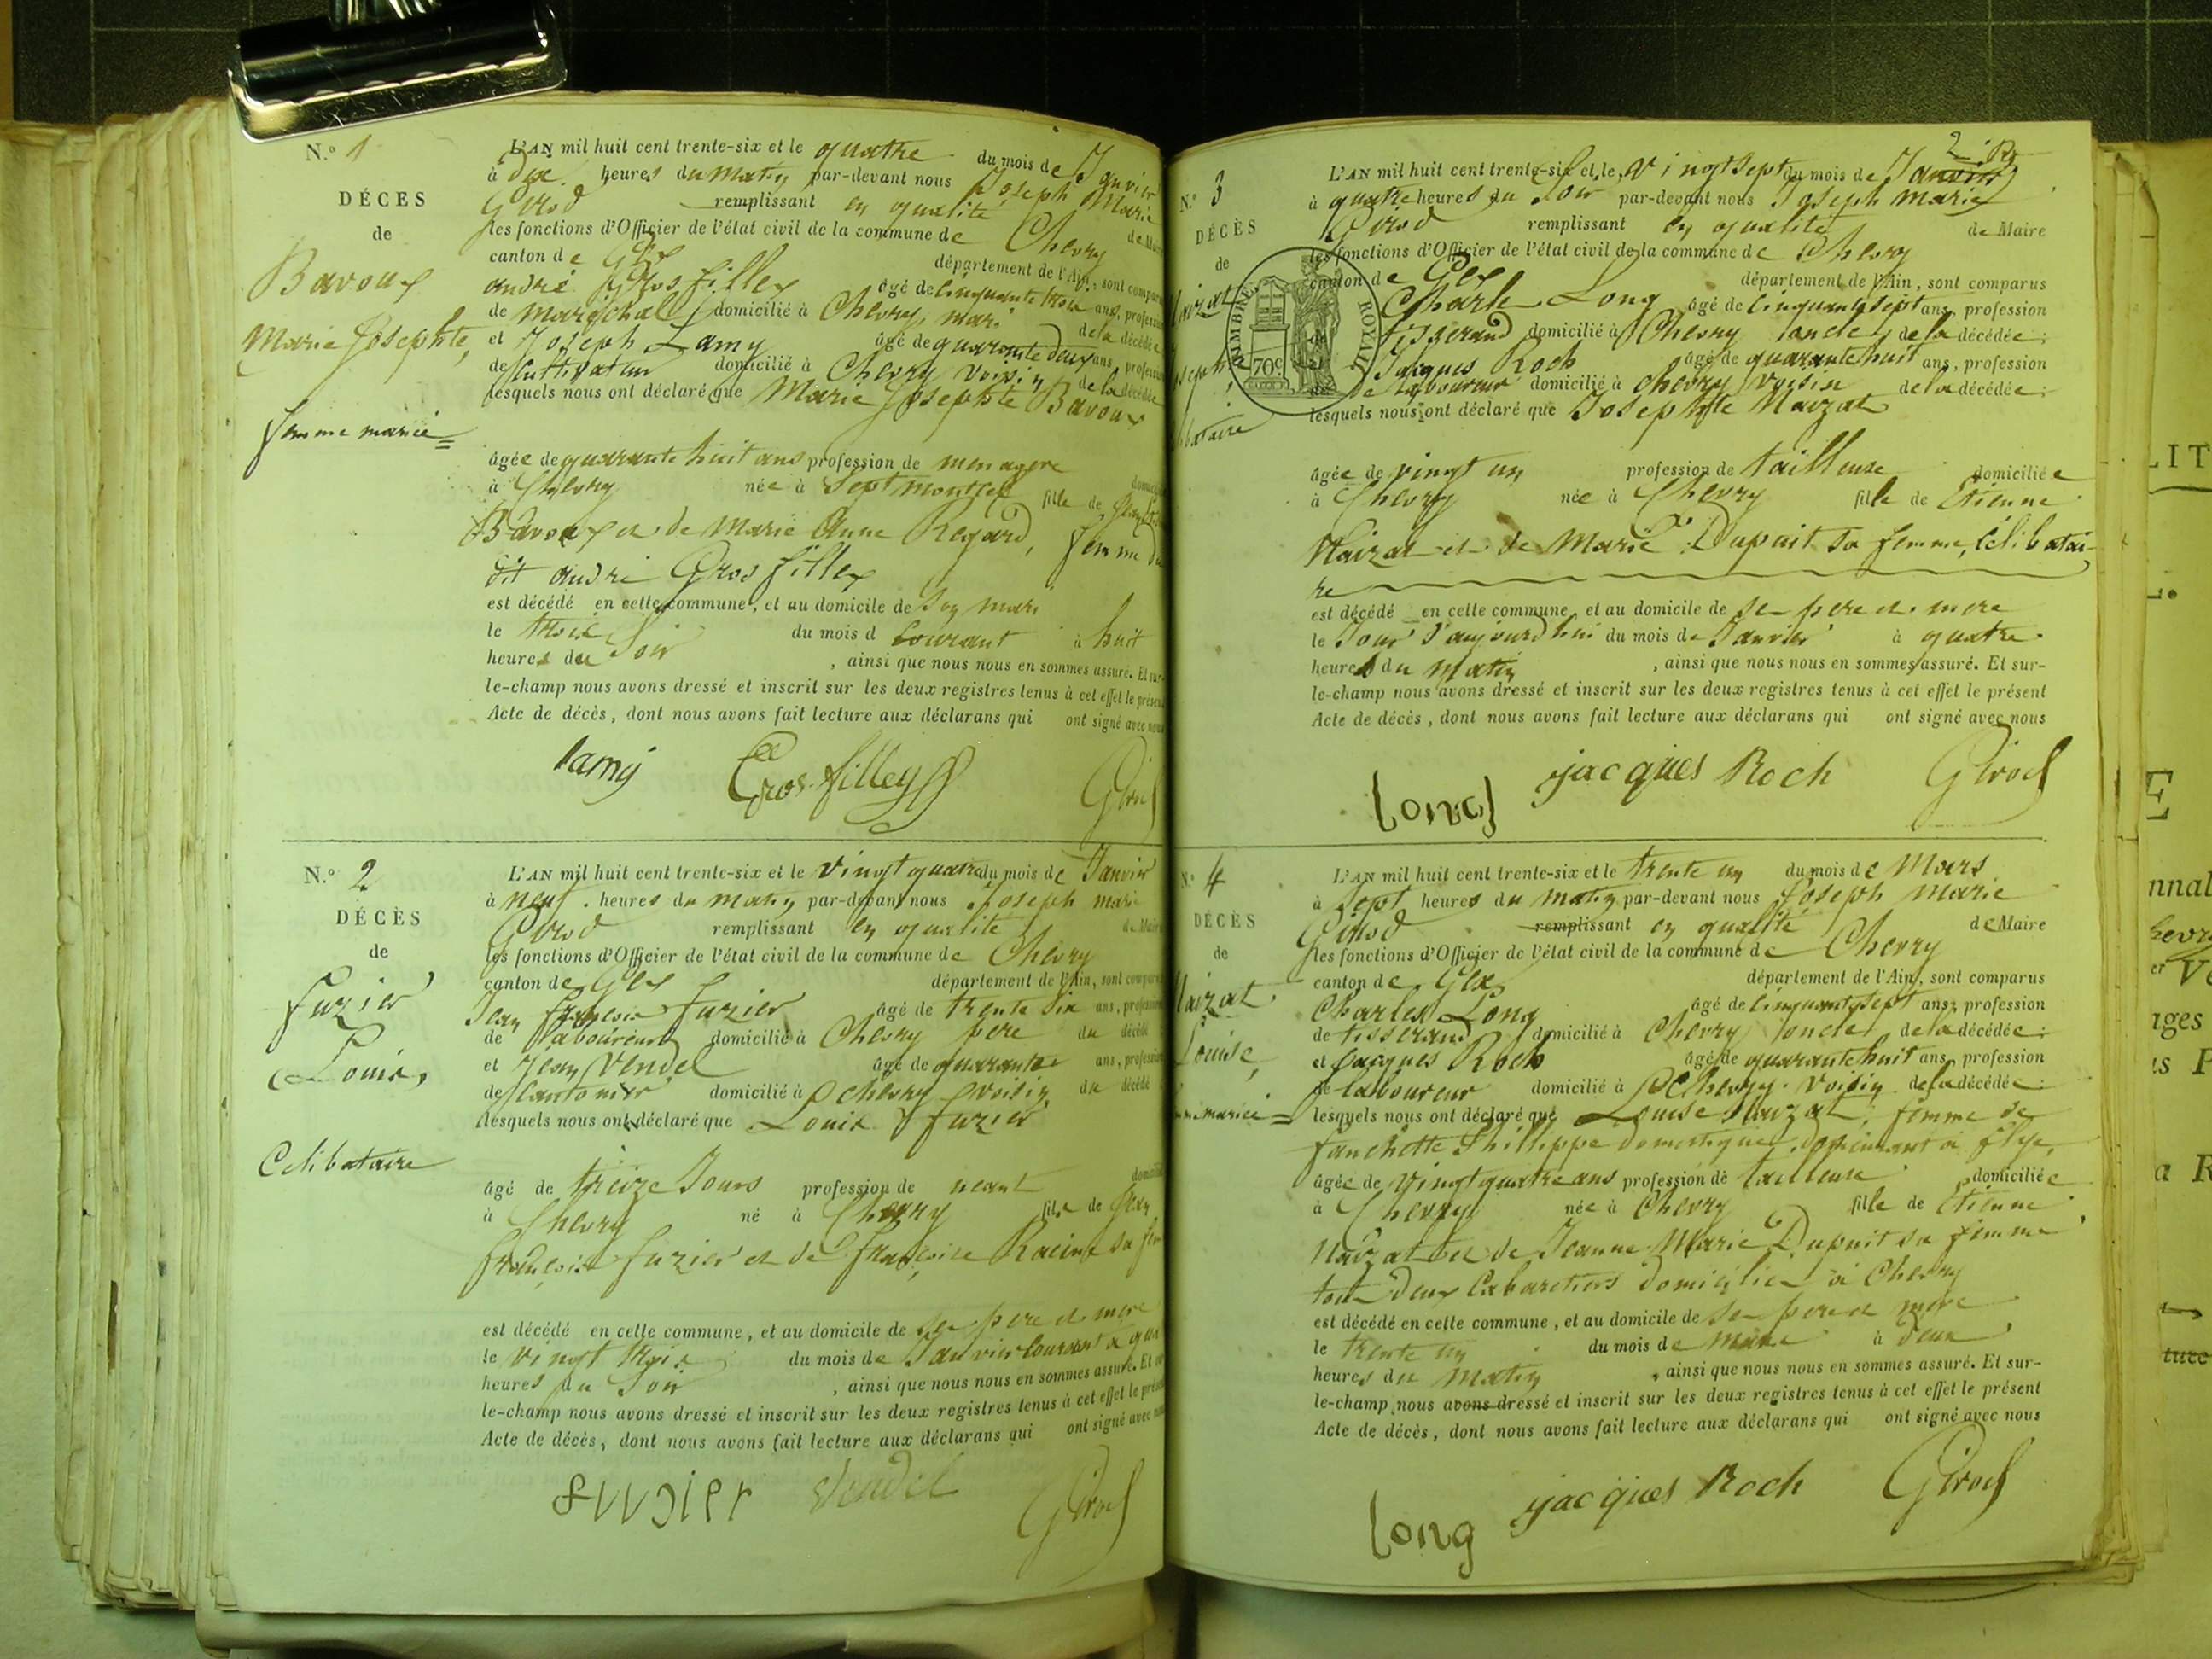 N.° 1
DÉCES
de
Bavoux
Marie Josephte,
femme mariée
L'AN mil huit cent trente-six et le quatre du mois de Janvier
à dix heures du matin par-devant nous Joseph Marie
Girod remplissant en qualité de Maire
les fonctions d'Officier de l'état civil de la commune de Chevry
canton de Gex département de l'Ain, sont comparus
andré Gros fillex âgé de cinquante trois ans, profession
de maréchal domicilié à Chevry, mari de la décédée
et Joseph Lamy âgé de quarante deux ans, profession
de cultivateur domicilié à Chevry voisin de la décédée
lesquels nous ont déclaré que Marie Josephte Bavoux
âgée de quarante huit ans profession de menagere
à Chevry née à Septmoncel fille de
Bavoux et de Marie Anne Regard, femme du
dit andré Gros fillex
est décédé en cette commune, et au domicile de son mari
le trois du mois d courant à huit
heures du soir , ainsi que nous nous en sommes assuré. Et sur-
le-champ nous avons dressé et inscrit sur les deux registres tenus à cet effet le présent
Acte de décès, dont nous avons fait lecture aux déclarans qui ont signé avec nous
lamy Gros-filley Girod
N.° 2
DÉCÈS
de
Fuzier
Louis,
Celibataire
L'AN mil huit cent trente-six et le vingt quatre du mois de Janvier
à neuf heures du matin par-devant nous Joseph marie
Girod remplissant en qualité de Maire
les fonctions d'Officier de l'état civil de la commune de Chevry
canton de Gex département de l'Ain, sont comparus
Jean françois fuzier âgé de trente six ans, profession
de laboureur domicilié à Chevry père du décédé
et Jean Vendel âgé de quarante ans, profession
de Cantonier domicilié à Chevry voisin du décédé
lesquels nous ont déclaré que Louis fuzier
âgé de treize Jours profession de neant
à Chevry né à Chevry fils de Jean
françois fuzier et de françoise Racine sa
est décédé en cette commune, et au domicile de se pere et mere
le vingt trois du mois de Janvier courant à
heures du soir , ainsi que nous nous en sommes assuré. Et
le-champ nous avons dressé et inscrit sur les deux registres tenus à cet effet le présent
Acte de décès, dont nous avons fait lecture aux déclarans qui ont signé avec
fuzier Vendel Girod
2
N.° 3
DÉCÈS
de
TIMBRE ROYAL
70c
L'AN mil huit cent trente-six et le vingt sept du mois de Janvier
à quatre heures du soir par-devant nous Joseph marie
Girod remplissant en qualité de Maire
les fonctions d'Officier de l'état civil de la commune de Chevry
canton de Gex département de l'Ain, sont comparus
Charle Long âgé de cinquante sept ans, profession
tisserand domicilié à Chevry oncle de la décédée;
Jacques Roch âgé de quarante huit ans, profession
de laboureur domicilié à Chevry voisin de la décédée;
lesquels nous ont déclaré que Josephte Maizat
âgée de vingt un profession de tailleuse domiciliée
à Chevry née à Chevry fille de Etienne
Maizat et de Marie Dupuit sa femme, Célibatai-
re
est décédé en cette commune, et au domicile de se pere et mere
le Jour d'aujourdhui du mois de Janvier à quatre
heures du matin , ainsi que nous nous en sommes assuré. Et sur-
le-champ nous avons dressé et inscrit sur les deux registres tenus à cet effet le présent
Acte de décès, dont nous avons fait lecture aux déclarans qui ont signé avec nous
long jacques Roch Girod
N.° 4
DÉCÈS
de
Maizat
Louise,
L'AN mil huit cent trente-six et le trente un du mois de Mars
à sept heures du matin par-devant nous Joseph marie
Girod remplissant en qualité de Maire
les fonctions d'Officier de l'état civil de la commune de Chevry
canton de Gex département de l'Ain, sont comparus
Charles Long âgé de cinquante sept ans, profession
de tisserand domicilié à Chevry oncle de la décédée;
et Jacques Roch âgé de quarante huit ans, profession
de laboureur domicilié à Chevry voisin de la décédée;
lesquels nous ont déclaré que Louise Maizat, femme de
fanchette Phillippe domestique, demeurant à
âgée de vingt quatre ans profession de tailleuse domiciliée
à Chevry née à Chevry fille de Etienne
Maizat et de Jeanne Marie Dupuit sa femme
tou deux Cabaretiers domicilié à Chevry
est décédé en cette commune, et au domicile de se pere et mere
le trente un du mois de mars à deux
heures du matin , ainsi que nous nous en sommes assuré. Et sur-
le-champ nous avons dressé et inscrit sur les deux registres tenus à cet effet le présent
Acte de décès, dont nous avons fait lecture aux déclarans qui ont signé avec nous
long jacques Roch Girod